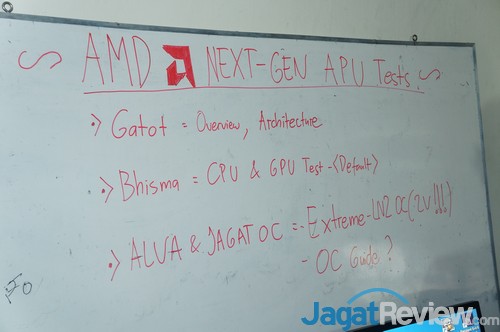 AMD NEXT-GEN APU Tests
> Gatot = Overview, Architecture
> Bhisma = CPU & GPU Test - <Default>
> ALVA & JAGAT OC = - Extreme - LN2 OC (2V!!!)
- OC Guide?
JagatReview